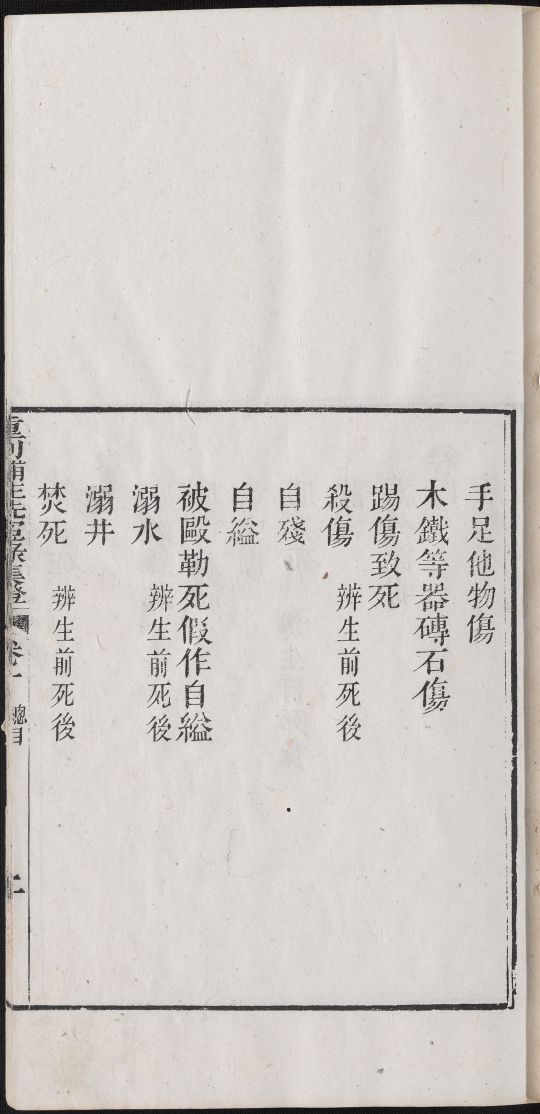 手足他物傷
木鐵等器磚石傷
踢傷致死
殺傷 辨生前死後
自殘
自縊
被毆勒死假作自縊
溺水 辨生前死後
溺井
焚死 辨生前死後
重刊補註洗冤錄集證 卷一 總目